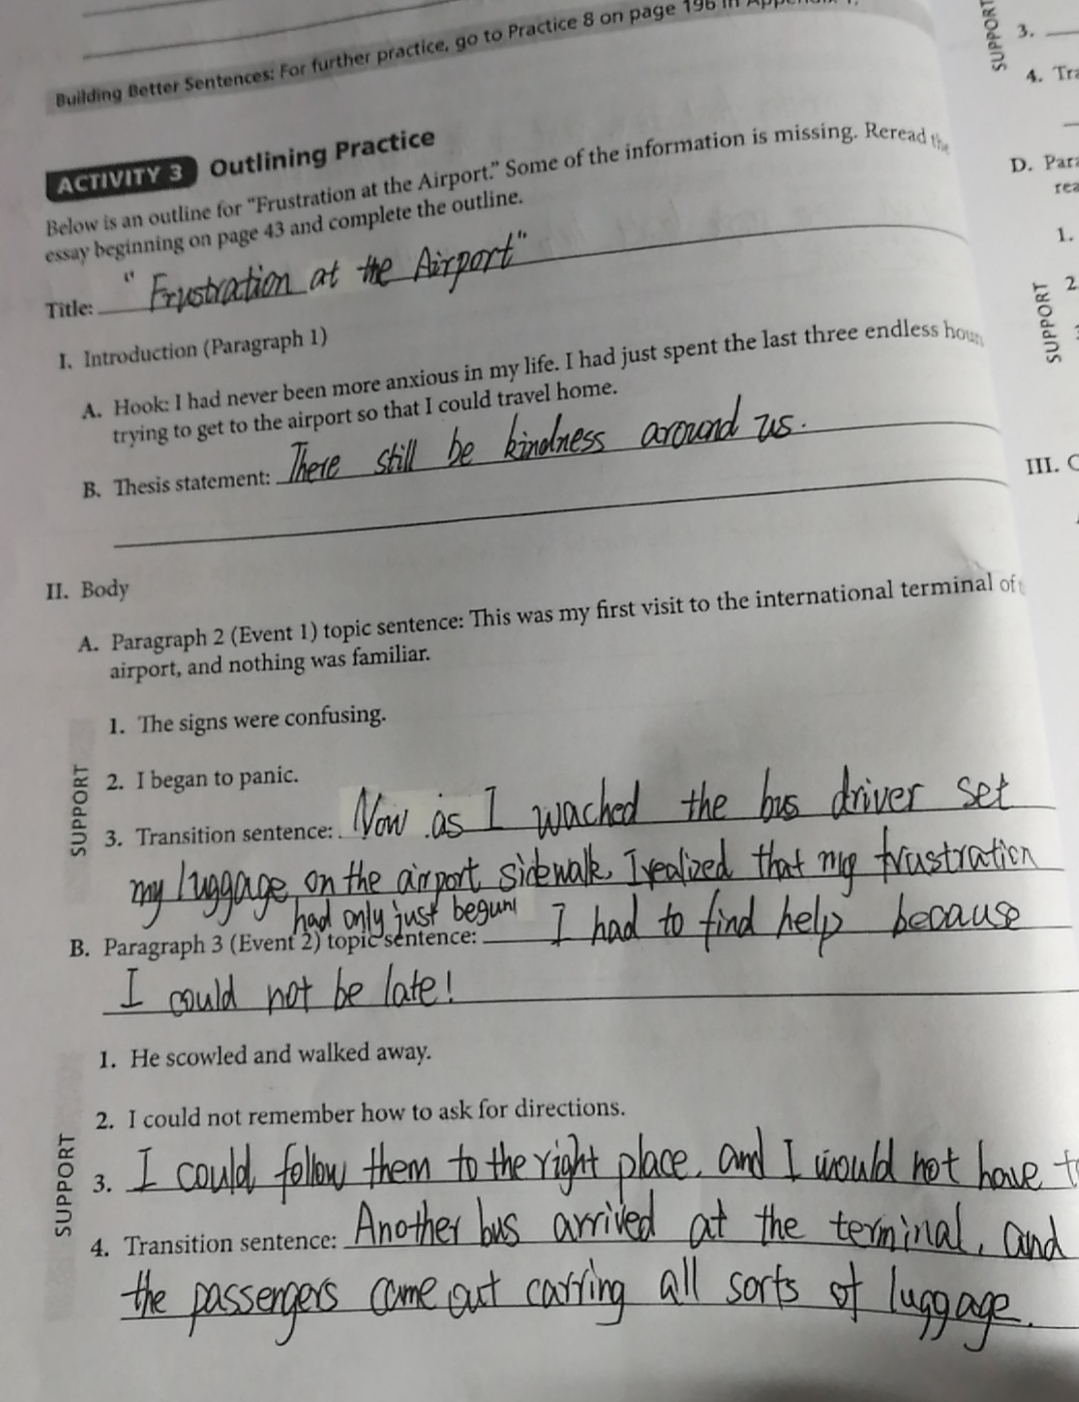 Building Better Sentences: For further practice, go to Practice 8 on page 196 in
ACTIVITY 3 Outlining Practice
Below is an outline for "Frustration at the Airport." Some of the information is missing. Reread the
essay beginning on page 43 and complete the outline.
Title: "Frustration at the Airport"
I. Introduction (Paragraph 1)
A. Hook: I had never been more anxious in my life. I had just spent the last three endless hours
trying to get to the airport so that I could travel home.
B. Thesis statement: There still be kindness around us.
II. Body
A. Paragraph 2 (Event 1) topic sentence: This was my first visit to the international terminal of
airport, and nothing was familiar.
1. The signs were confusing.
2. I began to panic.
3. Transition sentence: Now as I wached the bus driver set
my luggage on the airport sidewalk, I realized that my frustration
had only just begun!
B. Paragraph 3 (Event 2) topic sentence: I had to find help because
I could not be late!
SUPPORT
1. He scowled and walked away.
2. I could not remember how to ask for directions.
3. I could follow them to the right place, and I would not have
4. Transition sentence: Another bus arrived at the terminal, and
the passengers came out carring all sorts of luggage.
SUPPORT
SUPPORT
3.
4.
D.
1.
2
SUPPORT
III.